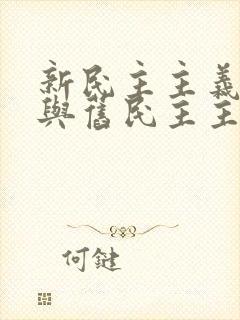 新民主主義
與舊民主主
何鍵